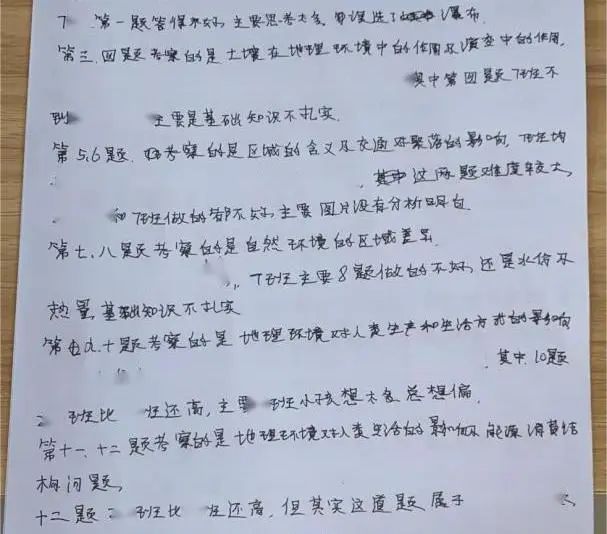 7 第一题答得不好 主要思考太多, 错误选了瀑布.
第三.四题考察的是土壤在地理环境中的作用及演变中的作用,
其中第四题7班不
到 主要是基础知识不扎实.
第5.6题. 考察的是区域的含义及交通对聚落的影响, 7班均
. 其中这两题难度较大,
和7班做的都不好,主要图片没有分析明白.
第七.八题考察的是自然环境的区域差异.
7班主要8题做的不好,还是水份不
热量,基础知识不扎实
第九.十题考察的是地理环境对人类生产和生活方式的影响
.其中.10题
班比 班还高,主要 班小孩想太多总想偏,
第十一、十二题考察的是地理环境对人类生活的影响以及能源消费结
构问题,
十二题: 班比 班还高,但其实这道题属于